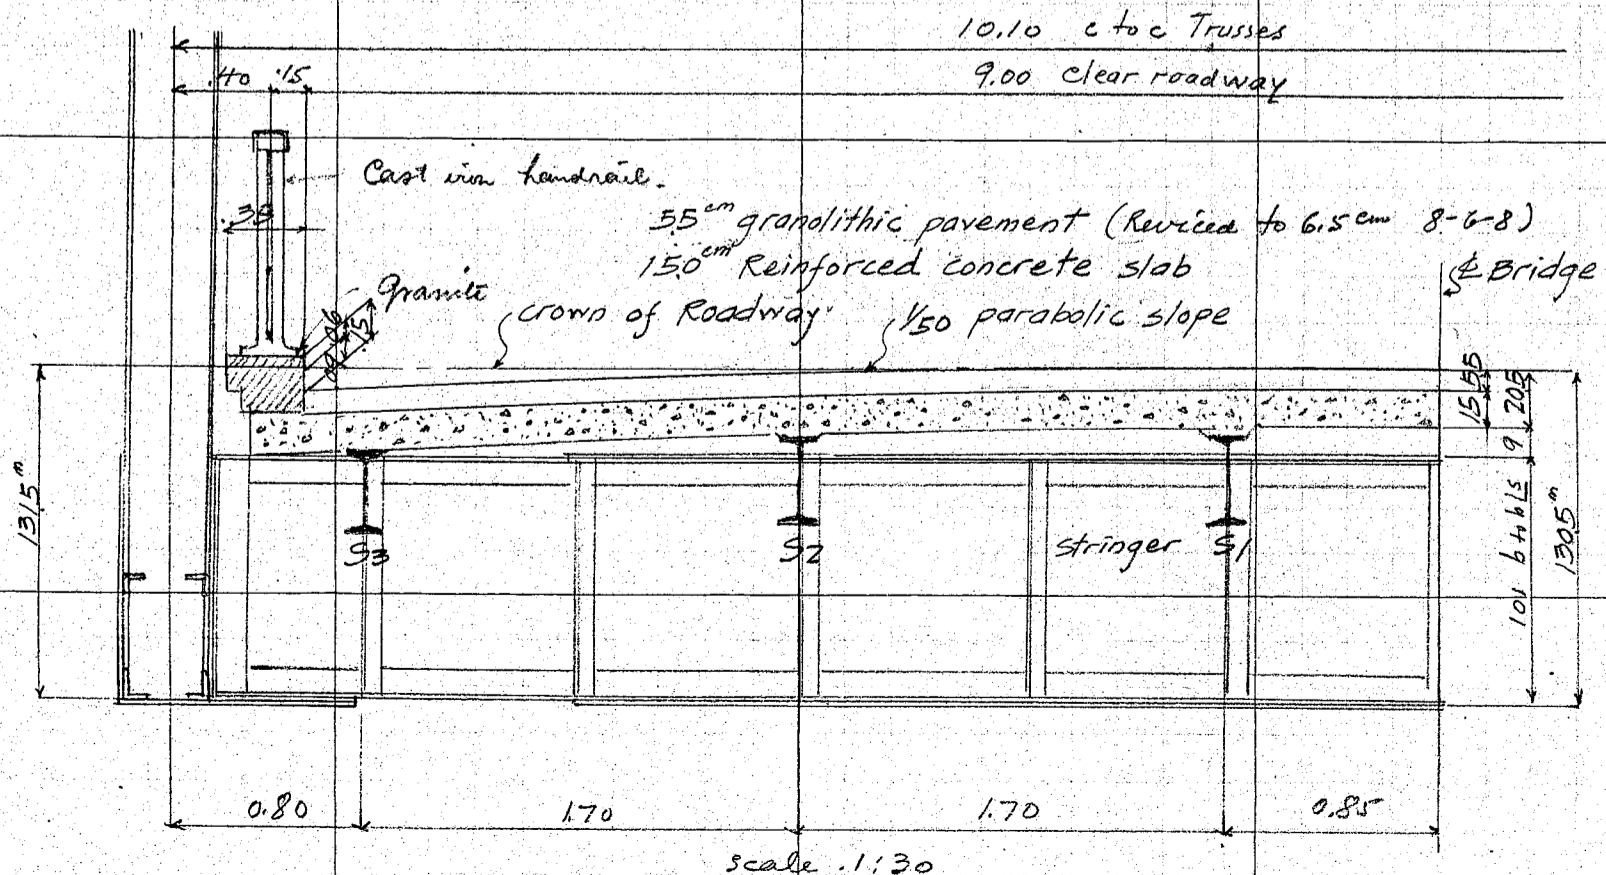 10.10 c to c Trusses
9.00 clear roadway
.40 .15
Cast iron handrail.
.38
55cm granolithic pavement (Reviced to 6.5cm 8-6-8)
150cm Reinforced concrete slab
Granite
crown of Roadway
1/50 parabolic slope
℄ Bridge
.09 .06
.15
15 55
9 205
1315m
1305m
S3
S2
stringer S1
0.80
1.70
1.70
0.85
scale 1:30